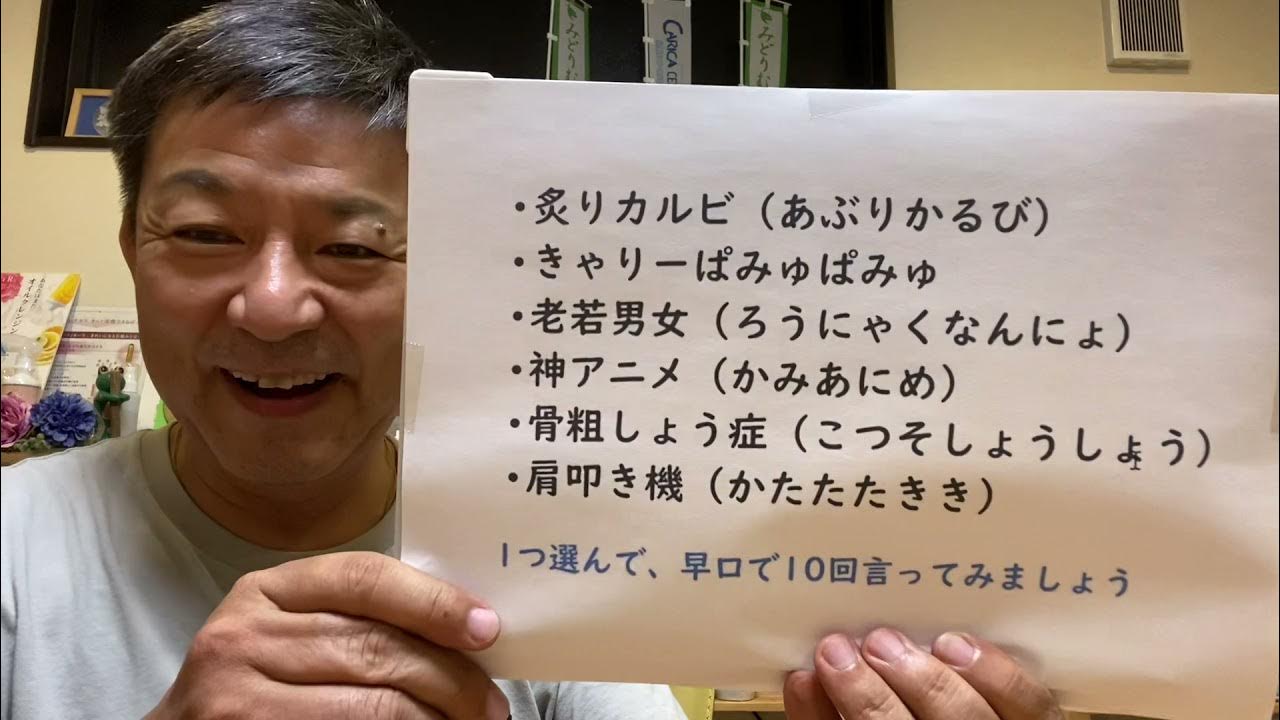 みどりむ
CARICA CE
みどりむ
オイルクレンジン
・炙りカルビ（あぶりかるび）
・きゃりーぱみゅぱみゅ
・老若男女（ろうにゃくなんにょ）
・神アニメ（かみあにめ）
・骨粗しょう症（こつそしょうしょう）
・肩叩き機（かたたたきき）
1つ選んで、早口で10回言ってみましょう